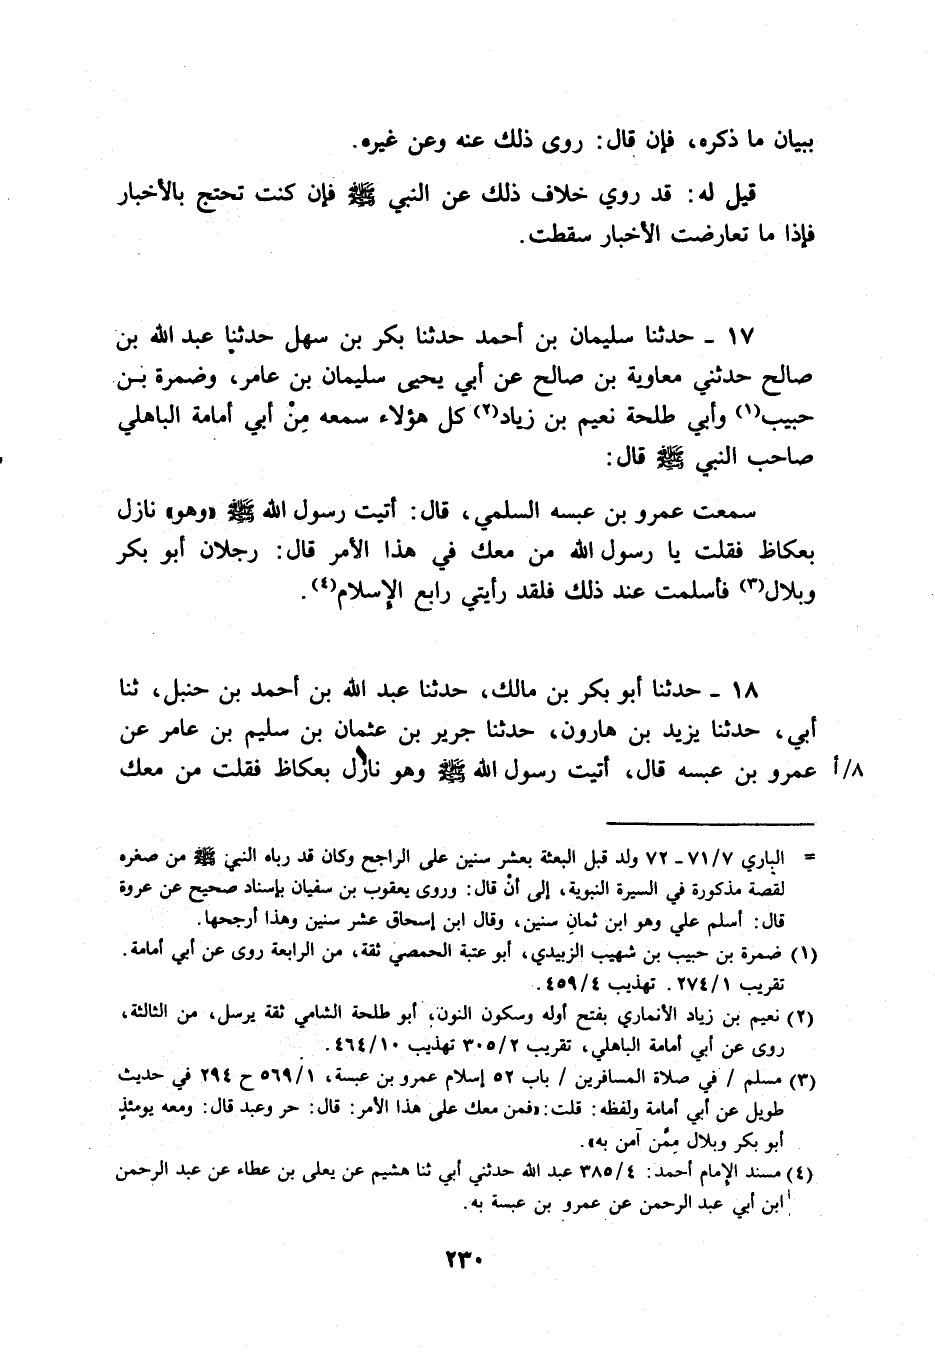 ببيان ما ذكره، فإن قال: روى ذلك عنه وعن غيره.
قيل له: قد روي خلاف ذلك عن النبي ﷺ فإن كنت تحتج بالأخبار
فإذا ما تعارضت الأخبار سقطت.
١٧ ـ حدثنا سليمان بن أحمد حدثنا بكر بن سهل حدثنا عبد الله بن
صالح حدثني معاوية بن صالح عن أبي يحيى سليمان بن عامر، وضمرة بـن
حبيب(١) وأبي طلحة نعيم بن زياد(٢) كل هؤلاء سمعه مِنْ أبي أمامة الباهلي
صاحب النبي ﷺ قال:
سمعت عمرو بن عبسه السلمي، قال: أتيت رسول الله ﷺ «وهو» نازل
بعكاظ فقلت يا رسول الله من معك في هذا الأمر قال: رجلان أبو بكر
وبلال(٣) فأسلمت عند ذلك فلقد رأيتي رابع الإسلام(٤).
١٨ ـ حدثنا أبو بكر بن مالك، حدثنا عبد الله بن أحمد بن حنبل، ثنا
أبي، حدثنا يزيد بن هارون، حدثنا جرير بن عثمان بن سليم بن عامر عن
٨/أ عمرو بن عبسه قال، أتيت رسول الله ﷺ وهو نازل بعكاظ فقلت من معك
= الباري ٧١/٧ ـ ٧٢ ولد قبل البعثة بعشر سنين على الراجح وكان قد رباه النبي ﷺ من صغره
لقصة مذكورة في السيرة النبوية، إلى أنْ قال: وروى يعقوب بن سفيان بإسناد صحيح عن عروة
قال: أسلم علي وهو ابن ثمانِ سنين، وقال ابن إسحاق عشر سنين وهذا أرجحها.
(١) ضمرة بن حبيب بن شهيب الزبيدي، أبو عتبة الحمصي ثقة، من الرابعة روى عن أبي أمامة.
تقريب ٢٧٤/١. تهذيب ٤٥٩/٤.
(٢) نعيم بن زياد الأنماري بفتح أوله وسكون النون، أبو طلحة الشامي ثقة يرسل، من الثالثة،
روى عن أبي أمامة الباهلي، تقريب ٣٠٥/٢ تهذيب ٤٦٤/١٠.
(٣) مسلم / في صلاة المسافرين / باب ٥٢ إسلام عمرو بن عبسة، ٥٦٩/١ ح ٢٩٤ في حديث
طويل عن أبي أمامة ولفظه: قلت: «فمن معك على هذا الأمر: قال: حر وعبد قال: ومعه يومئذٍ
أبو بكر وبلال مِمَّن آمن به».
(٤) مسند الإمام أحمد: ٣٨٥/٤ عبد الله حدثني أبي ثنا هشيم عن يعلى بن عطاء عن عبد الرحمن
ابن أبي عبد الرحمن عن عمرو بن عبسة به.
٢٣٠